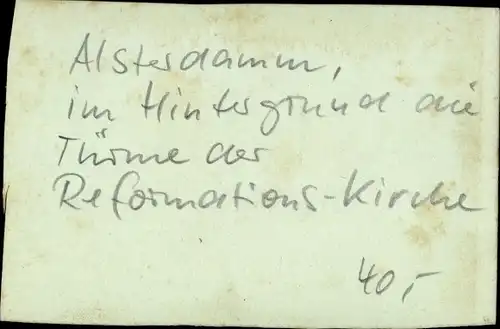 Alsterdamm,
im Hintergrund die
Türme der
Reformations-Kirche
40,-